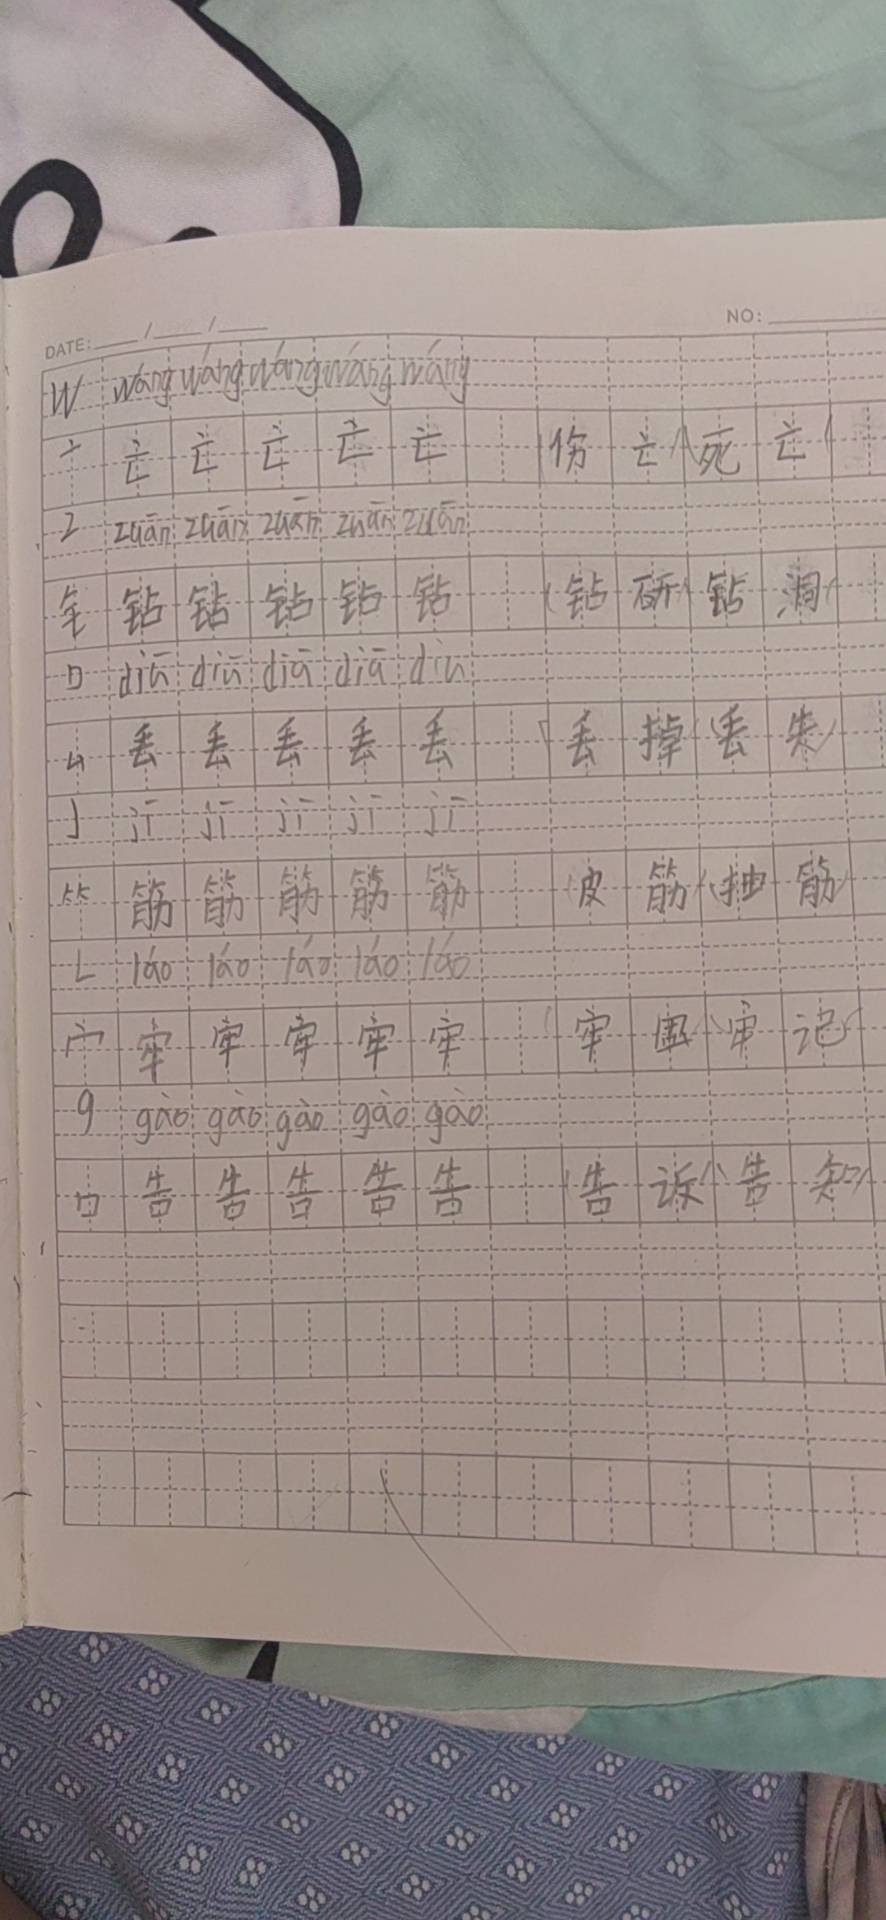 DATE: ___/___/___
NO: ___
W wáng wáng wáng wáng wáng
亠 亡 亡 亡 亡 亡 (伤亡)(死亡)
Z zuān zuān zuān zuān zuān
钅 钻 钻 钻 钻 钻 (钻研)(钻洞)
D diū diū diū diū diū
厶 丢 丢 丢 丢 丢 (丢掉)(丢失)
J jī jī jī jī jī
⺮ 筋 筋 筋 筋 筋 (皮筋)(抽筋)
L láo láo láo láo láo
宀 牢 牢 牢 牢 牢 (牢固)(牢记)
g gào gào gào gào gào
口 告 告 告 告 告 (告诉)(告知)